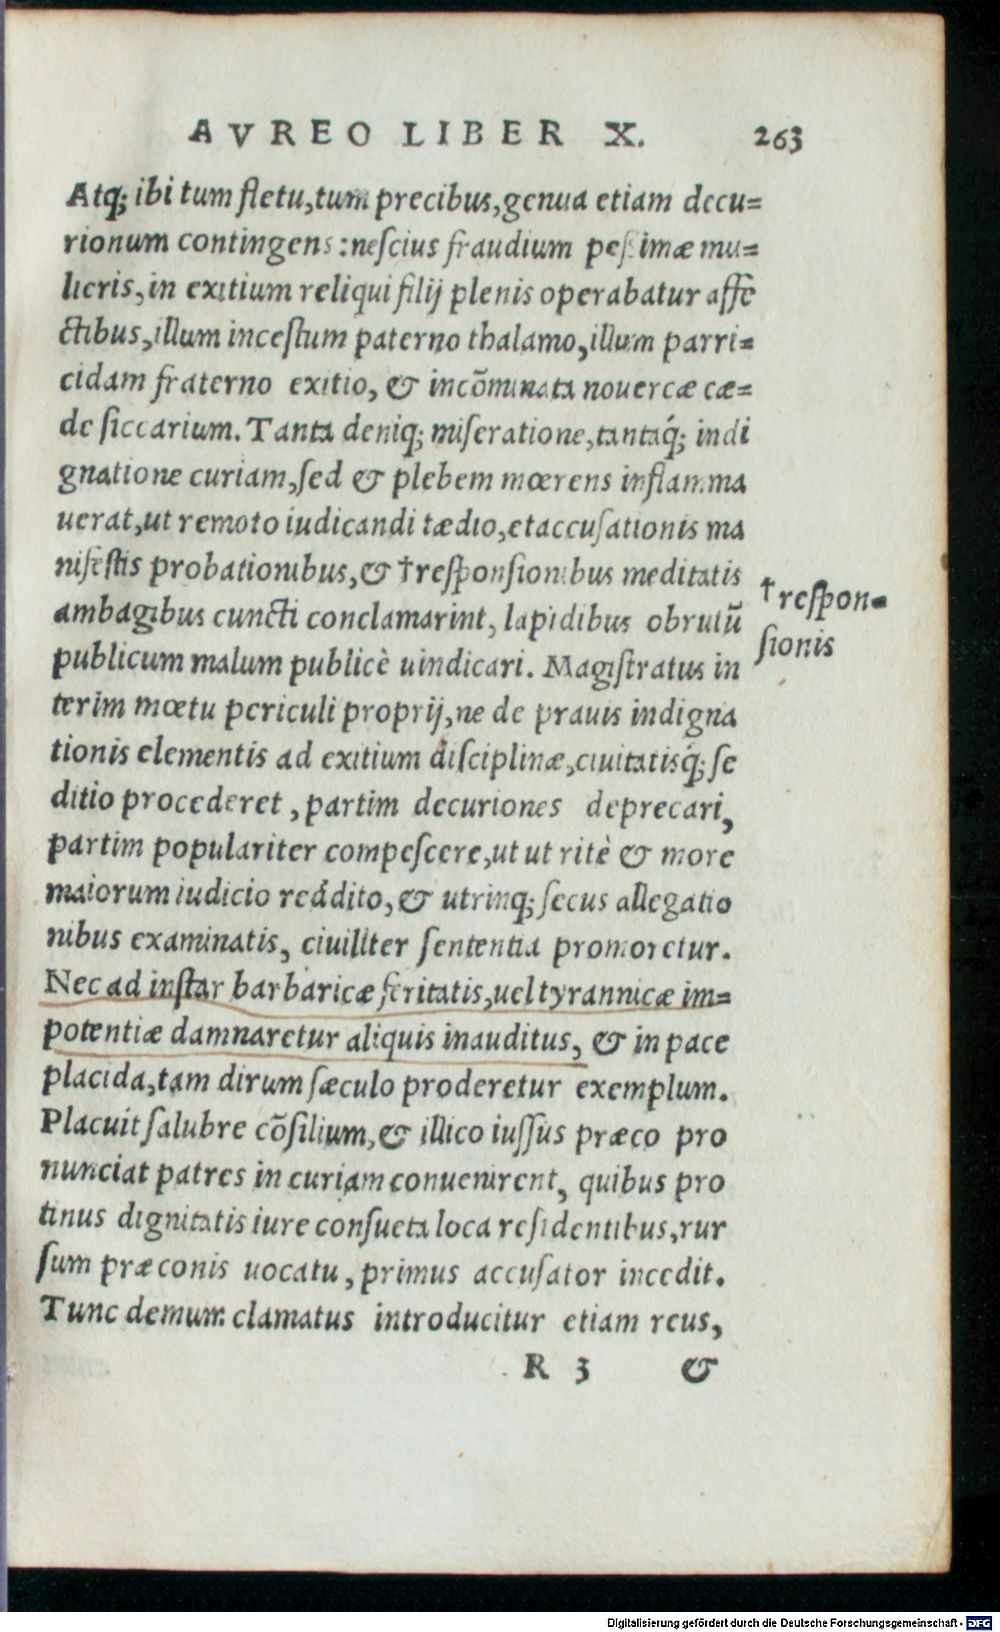 AVREO LIBER X. 263
Atq; ibi tum fletu, tum precibus, genua etiam decu=
rionum contingens: neſcius fraudium peſſimæ mu=
lieris, in exitium reliqui filij plenis operabatur affe
ctibus, illum inceſtum paterno thalamo, illum parri=
cidam fraterno exitio, & incõminata nouercæ cæ=
de ſiccarium. Tanta deniq; miſeratione, tantáq; indi
gnatione curiam, ſed & plebem mœrens inflamma
uerat, ut remoto iudicandi tædio, et accuſationis ma
nifeſtis probationibus, & †reſponſionibus meditatis
ambagibus cuncti conclamarint, lapidibus obrutũ
publicum malum publicè uindicari. Magiſtratus in
terim mœtu periculi proprij, ne de prauis indigna
tionis elementis ad exitium diſciplinæ, ciuitatisq́; ſe
ditio procederet, partim decuriones deprecari,
partim populariter compeſcere, ut ut ritè & more
maiorum iudicio reddito, & utrinq; ſecus allegatio
nibus examinatis, ciuiliter ſententia promoretur.
Nec ad inſtar barbaricæ feritatis, uel tyrannicæ im=
potentiæ damnaretur aliquis inauditus, & in pace
placida, tam dirum ſæculo proderetur exemplum.
Placuit ſalubre cõſilium, & illico iuſſus præco pro
nunciat patres in curiam conuenirent, quibus pro
tinus dignitatis iure conſueta loca reſidentibus, rur
ſum præconis uocatu, primus accuſator incedit.
Tunc demum clamatus introducitur etiam reus,
R 3 &
†reſpon=
ſionis
Digitalisierung gefördert durch die Deutsche Forschungsgemeinschaft - DFG